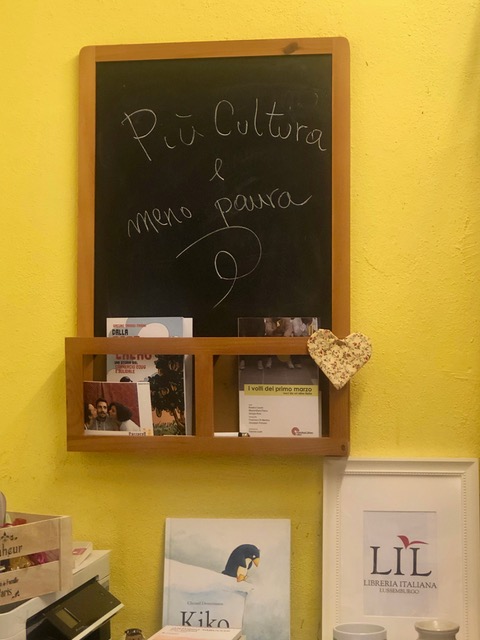 Più Cultura
e
meno paura
DALLA
CACAO
I volti del primo marzo
nheur
LIL
LIBRERIA ITALIANA
LUSSEMBURGO
Kiko